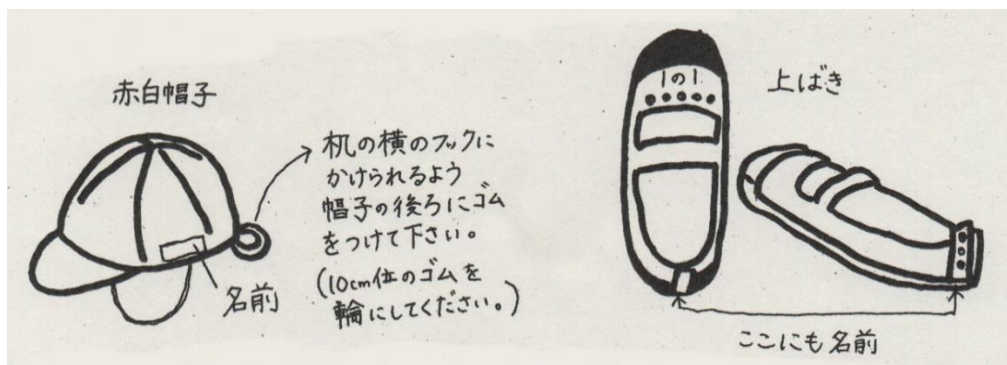 赤白帽子
机の横のフックに
かけられるよう
帽子の後ろにゴム
をつけて下さい。
(10cm位のゴムを
輪にしてください。)
名前
1の1
上ばき
ここにも名前